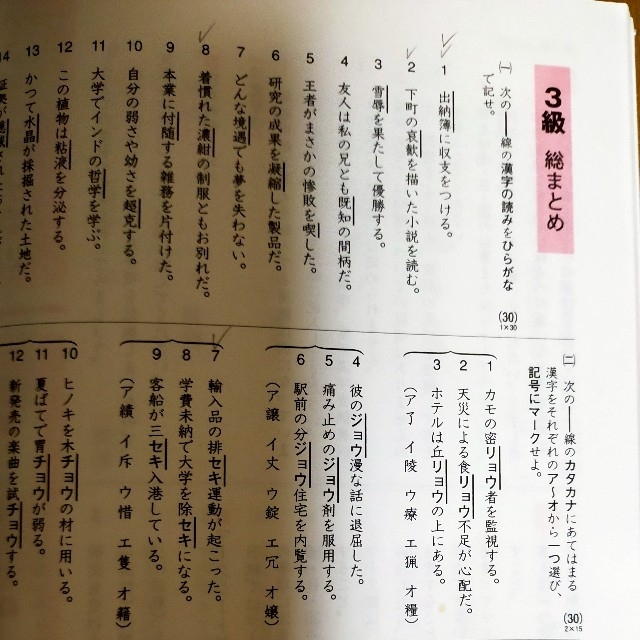 3級 総まとめ
㈠ 次の──線の漢字の読みをひらがな
で記せ。
(30)
1×30
1 出納簿に収支をつける。
2 下町の哀歓を描いた小説を読む。
3 雪辱を果たして優勝する。
4 友人は私の兄とも既知の間柄だ。
5 王者がまさかの惨敗を喫した。
6 研究の成果を凝縮した製品だ。
7 どんな境遇でも夢を失わない。
8 着慣れた濃紺の制服ともお別れだ。
9 本業に付随する雑務を片付けた。
10 自分の弱さや幼さを超克する。
11 大学でインドの哲学を学ぶ。
12 この植物は粘液を分泌する。
13 かつて水晶が採掘された土地だ。
14
㈡ 次の──線のカタカナにあてはまる
漢字をそれぞれのア〜オから一つ選び、
記号にマークせよ。
(30)
2×15
1 カモの密リョウ者を監視する。
2 天災による食リョウ不足が心配だ。
3 ホテルは丘リョウの上にある。
(ア了 イ陵 ウ療 エ猟 オ糧)
4 彼のジョウ漫な話に退屈した。
5 痛み止めのジョウ剤を服用する。
6 駅前の分ジョウ住宅を内覧する。
(ア譲 イ丈 ウ錠 エ冗 オ嬢)
7 輸入品の排セキ運動が起こった。
8 学費未納で大学を除セキになる。
9 客船が三セキ入港している。
(ア績 イ斥 ウ惜 エ隻 オ籍)
10 ヒノキを木チョウの材に用いる。
11 夏ばてで胃チョウが弱る。
12 新発売の楽曲を試チョウする。